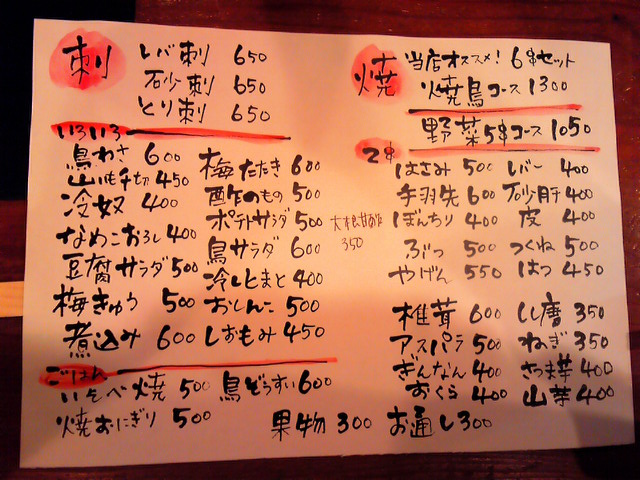 刺
レバ刺 650
石少刺 650
とり刺 650
いろいろ
鳥わさ 600
山いも千切 450
冷奴 400
なめこおろし 400
豆腐サラダ 500
梅きゅう 500
煮込み 600
梅たたき 600
酢のもの 500
ポテトサラダ 500
鳥サラダ 600
冷しとまと 400
おしんこ 500
しおもみ 450
350
ごはん
いそべ焼 500
鳥ぞうすい 600
焼おにぎり 500
果物 300
お通し 300
焼
当店オススメ! 6串セット
焼鳥コース 1300
野菜5串コース 1050
2串
はさみ 500
手羽先 600
ぼんちり 400
ぶつ 500
やげん 550
レバー 400
砂肝 400
皮 400
つくね 500
はつ 450
椎茸 600
アスパラ 500
ぎんなん 400
おくら 400
しし唐 350
ねぎ 350
さつま芋 400
山芋 400